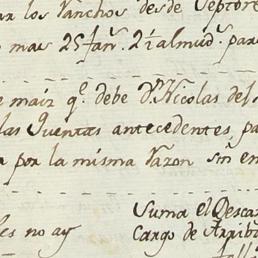 los Ranchos desde Septre
mas 25 fan.s 2½ almud.s para
maiz q.e debe D.n Nicolas del
las Quentas antecedentes, pa
por la misma Razon sin en
Suma el Descar
les no ay
Cargo de Arriba